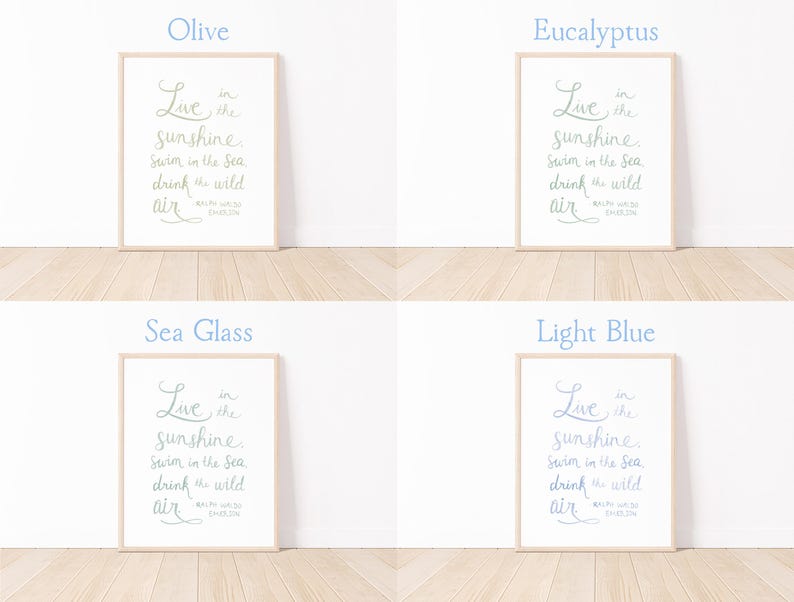 Olive
Live in the
sunshine.
Swim in the Sea,
drink the wild
air. - RALPH WALDO
EMERSON
Eucalyptus
Live in the
sunshine.
Swim in the Sea,
drink the wild
air. - RALPH WALDO
EMERSON
Sea Glass
Live in the
sunshine.
Swim in the Sea,
drink the wild
air. - RALPH WALDO
EMERSON
Light Blue
Live in the
sunshine.
Swim in the Sea,
drink the wild
air. - RALPH WALDO
EMERSON